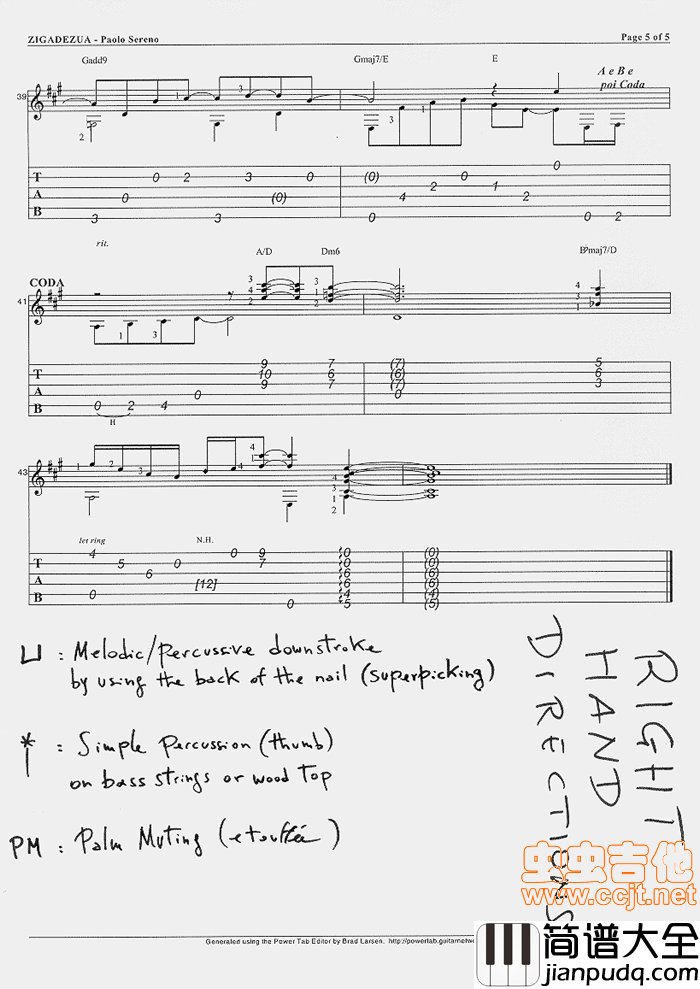 ZIGADEZUA - Paolo Sereno
Page 5 of 5
Gadd9
Gmaj7/E
E
A e B e
poi Coda
39
1
3
2
T
A
B
3 0 0 2 3 3 (0) 0
(0) 0 4 2 0 1 2 0 0 2
rit.
CODA
A/D
Dm6
B♭maj7/D
41
T
A
B
0 2 4 0
H
9
10
9
7
6
7
(7)
(6)
(7)
0
5
6
3
43
let ring
N.H.
T
A
B
4 0 5 6 0 [12] 0
9
7
0
0
0
6
6
4
5
(0)
(0)
(6)
(6)
(4)
(5)
⊔ : Melodic/percussive downstroke
by using the back of the nail (superpicking)
* : Simple Percussion (thumb)
on bass strings or wood top
PM : Palm Muting (etouffée)
RIGHT
HAND
DIRECTIONS
虫虫吉他
www.ccjt.net
Generated using the Power Tab Editor by Brad Larsen. http://powertab.guitarnetw
简谱大全
jianpudq.com